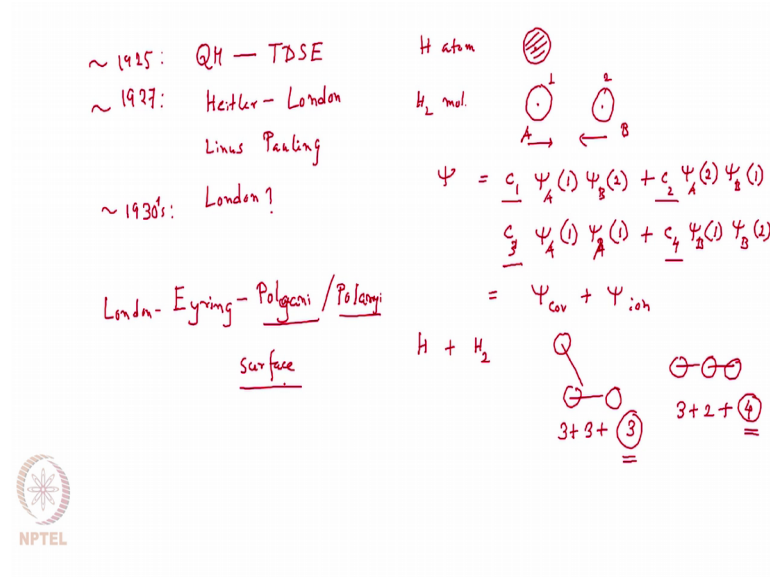 ~ 1925: QM — TDSE
~ 1927: Heitler - London
Linus Pauling
~ 1930's: London?
London - Eyring - Polgani / Polanyi
Surface
H atom
H₂ mol.
1 2
A B
Ψ = c₁ Ψ_A(1) Ψ_B(2) + c₂ Ψ_A(2) Ψ_B(1)
c₃ Ψ_A(1) Ψ_A(1) + c₄ Ψ_B(1) Ψ_B(2)
= Ψ_cov + Ψ_ion
H + H₂
3+3+3
3+2+4
NPTEL